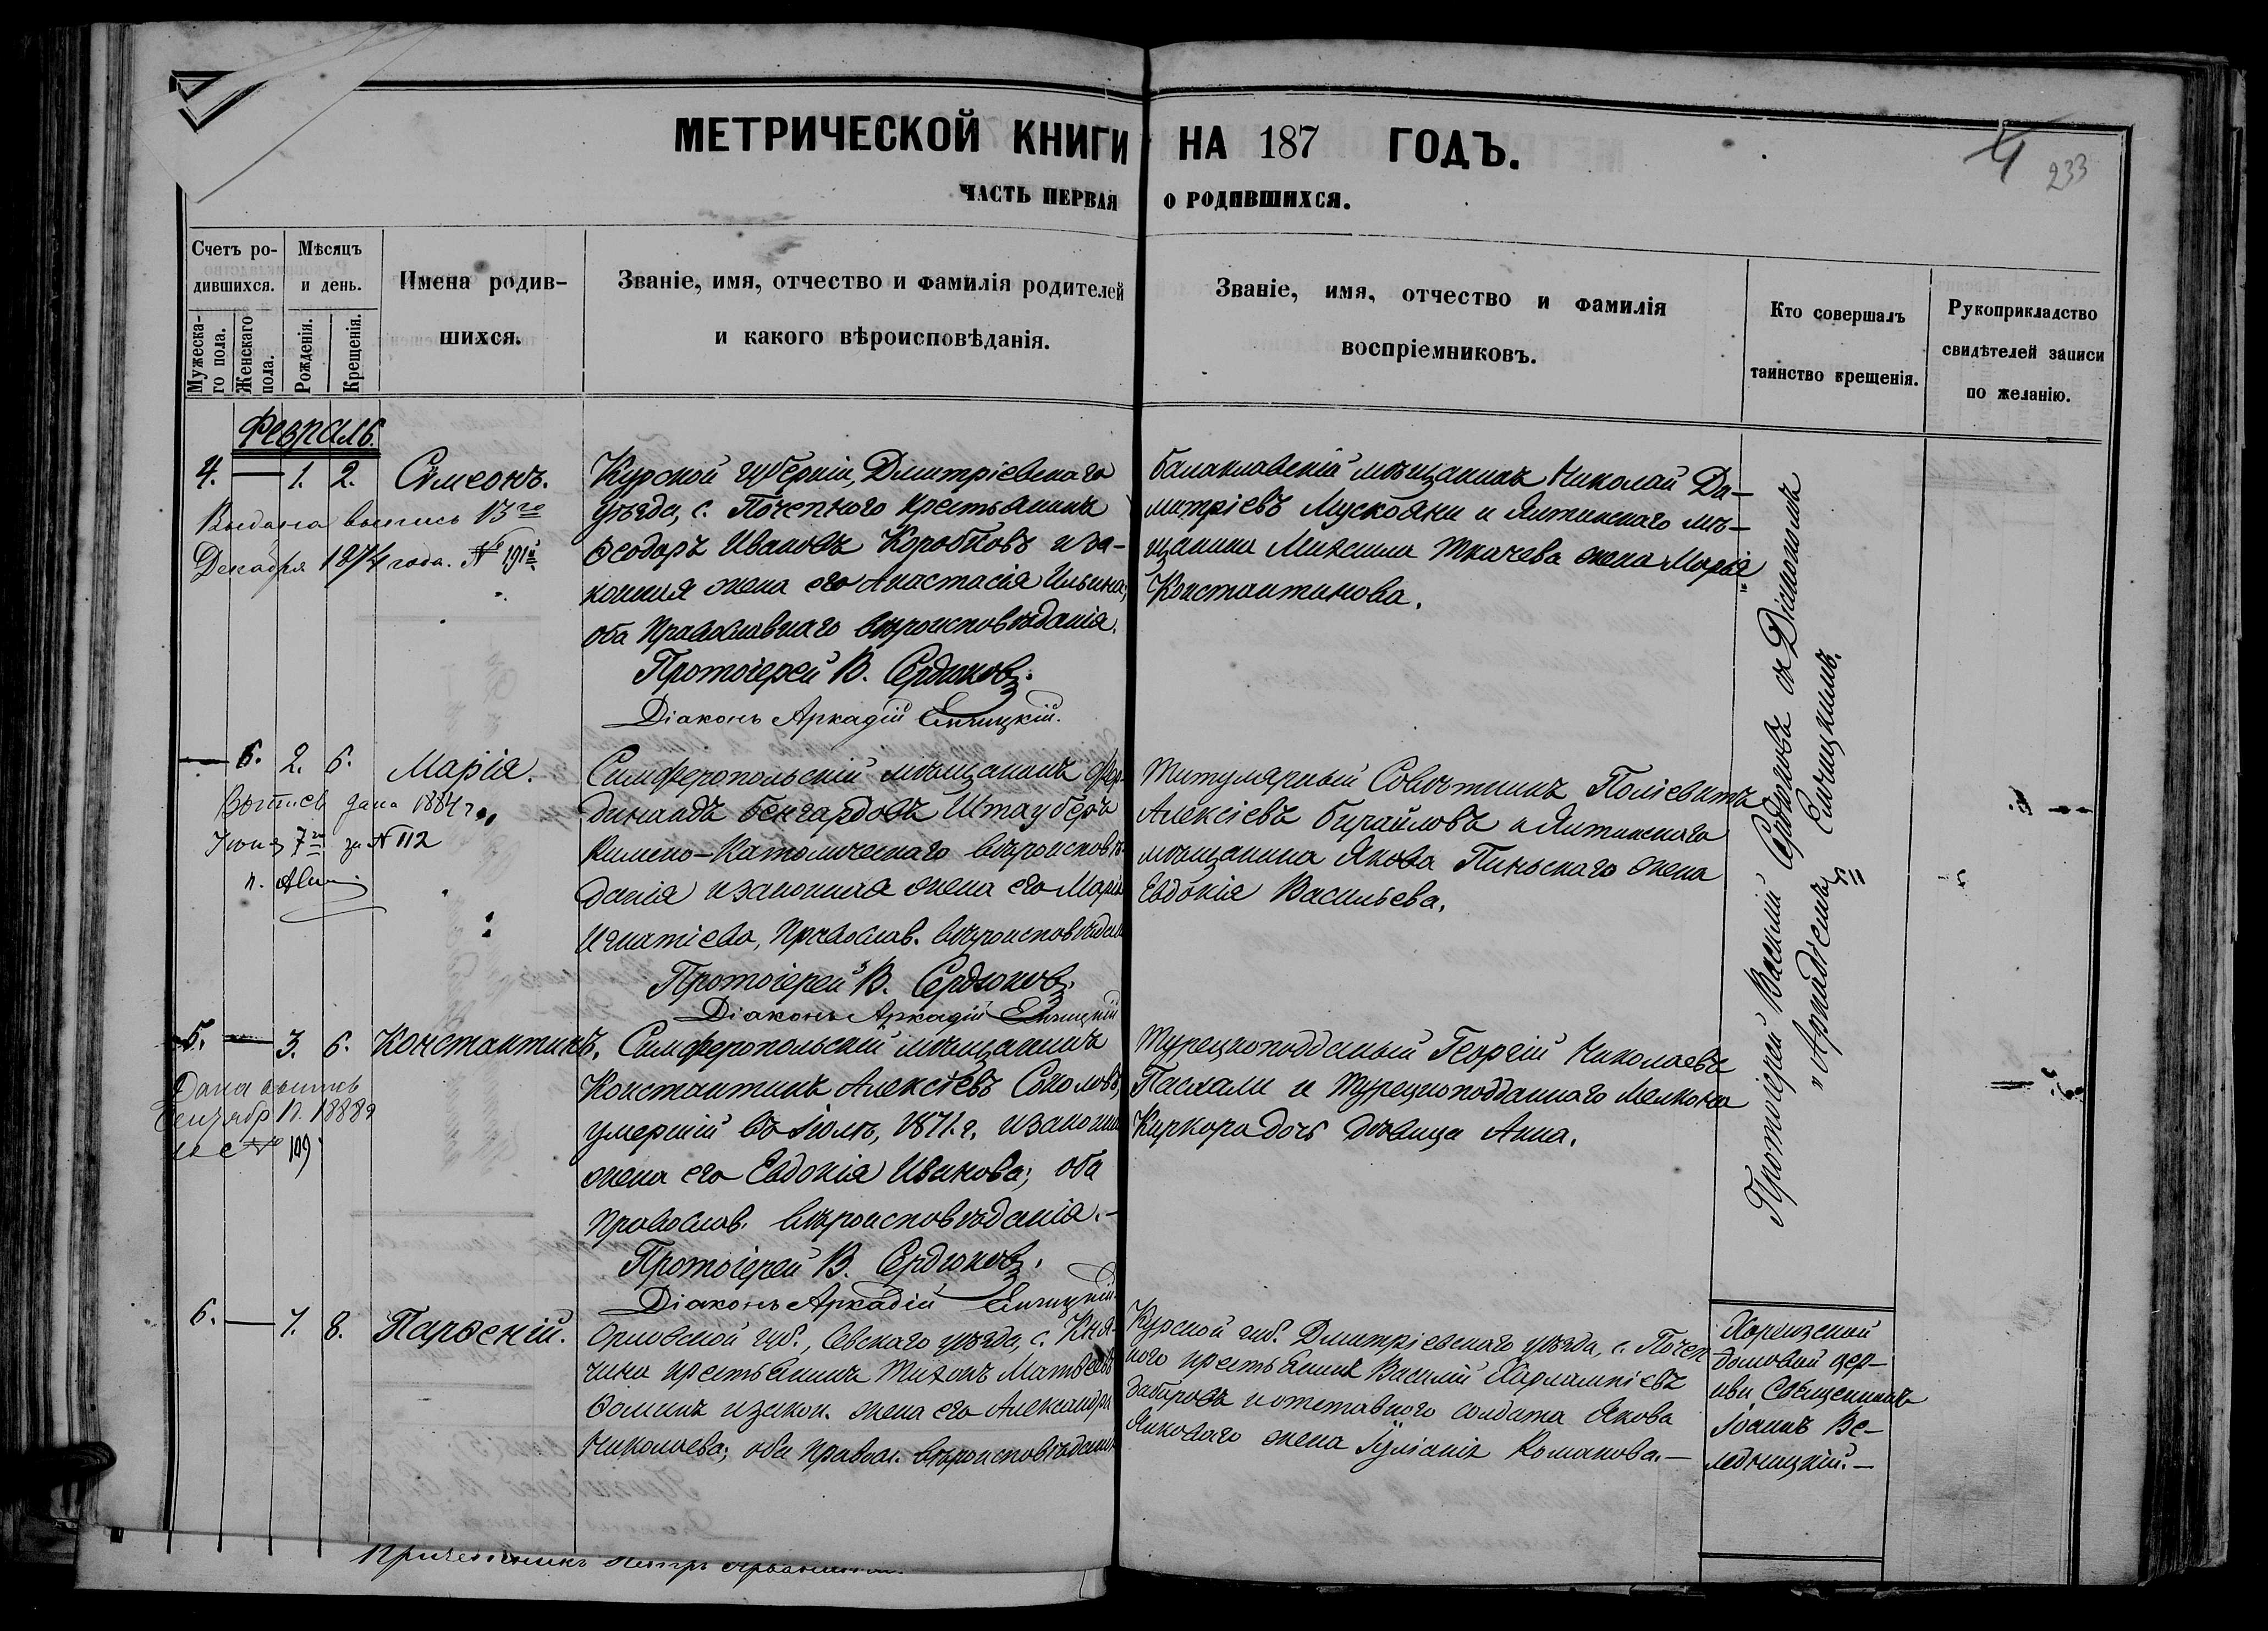 МЕТРИЧЕСКОЙ КНИГИ НА 187 ГОДЪ.
ЧАСТЬ ПЕРВАЯ О РОДИВШИХСЯ.
233
Счетъ ро-
дившихся.
Мужеска-
го пола.
Женскаго
пола.
Мѣсяцъ
и день.
Рожденія.
Крещенія.
Имена родив-
шихся.
Званіе, имя, отчество и фамилія родителей
и какого вѣроисповѣданія.
Званіе, имя, отчество и фамилія
воспріемниковъ.
Кто совершалъ
таинство крещенія.
Рукоприкладство
свидѣтелей записи
по желанію.
Февраль.
4. — 1. 2. Симеонъ.
Выдана выпись 13го
Декабря 1874 года. № 191й
Курской губерніи, Дмитріевскаго
уѣзда, с. Почепного крестьянинъ
Ѳеодоръ Ивановъ Коробковъ и за-
конная жена его Анастасія Ильина;
оба Православнаго вѣроисповѣданія.
Протоіерей В. Сердюковъ.
Діаконъ Аркадій
Балаклавскій мѣщанинъ Николай Ди-
митріевъ Мускояни и Ялтинскаго мѣ-
щанина Михаила Ткачева жена Марія
Константинова.
Протоіерей Василій Сердюковъ съ Діакономъ
Аркадіемъ
— 6. 2. 6. Марія.
Выпись дана 1884 г.
Іюня 7го за № 112
Симферопольскій мѣщанинъ Фер-
динандъ Бенгардовъ Штауберъ
Римско-Католическаго вѣроисповѣ-
данія и законная жена его Марія
Игнатіева, Православ. вѣроисповѣдан.
Протоіерей В. Сердюковъ.
Діаконъ Аркадій
Титулярный Совѣтникъ Поліевктъ
Алексіевъ Бурайловъ и Ялтинскаго
мѣщанина Якова Пинскаго жена
Евдокія Васильева.
5. — 3. 6. Константинъ.
Дана выпись
188
№ 109
Симферопольскій мѣщанинъ
Константинъ Алексіевъ Соколовъ,
умершій въ Іюлѣ, 1871. г. и законная
жена его Евдокія Иванова; оба
православ. вѣроисповѣданія.
Протоіерей В. Сердюковъ.
Діаконъ Аркадій
Турецкоподданый Георгій Николаевъ
Пасхали и Турецкоподданнаго Мелкона
Киркора дочь дѣвица Анна.
6. — 7. 8. Парѳеній.
Орловской губ., Сѣвскаго уѣзда, с. Кня-
гина крестьянинъ Тихонъ Матвеевъ
Ѳоминъ и закон. жена его Александра
Николаева; оба правосл. вѣроисповѣданія
Курской губ. Дмитріевскаго уѣзда, с. Почеп-
ного крестьянинъ Василій Харлампіевъ
Забировъ и отставного солдата Якова
Янковаго жена Іуліанія Романова.—
Хореизской
домовой цер-
кви Священникъ
Іоаннъ Ве-
ледницкій.—